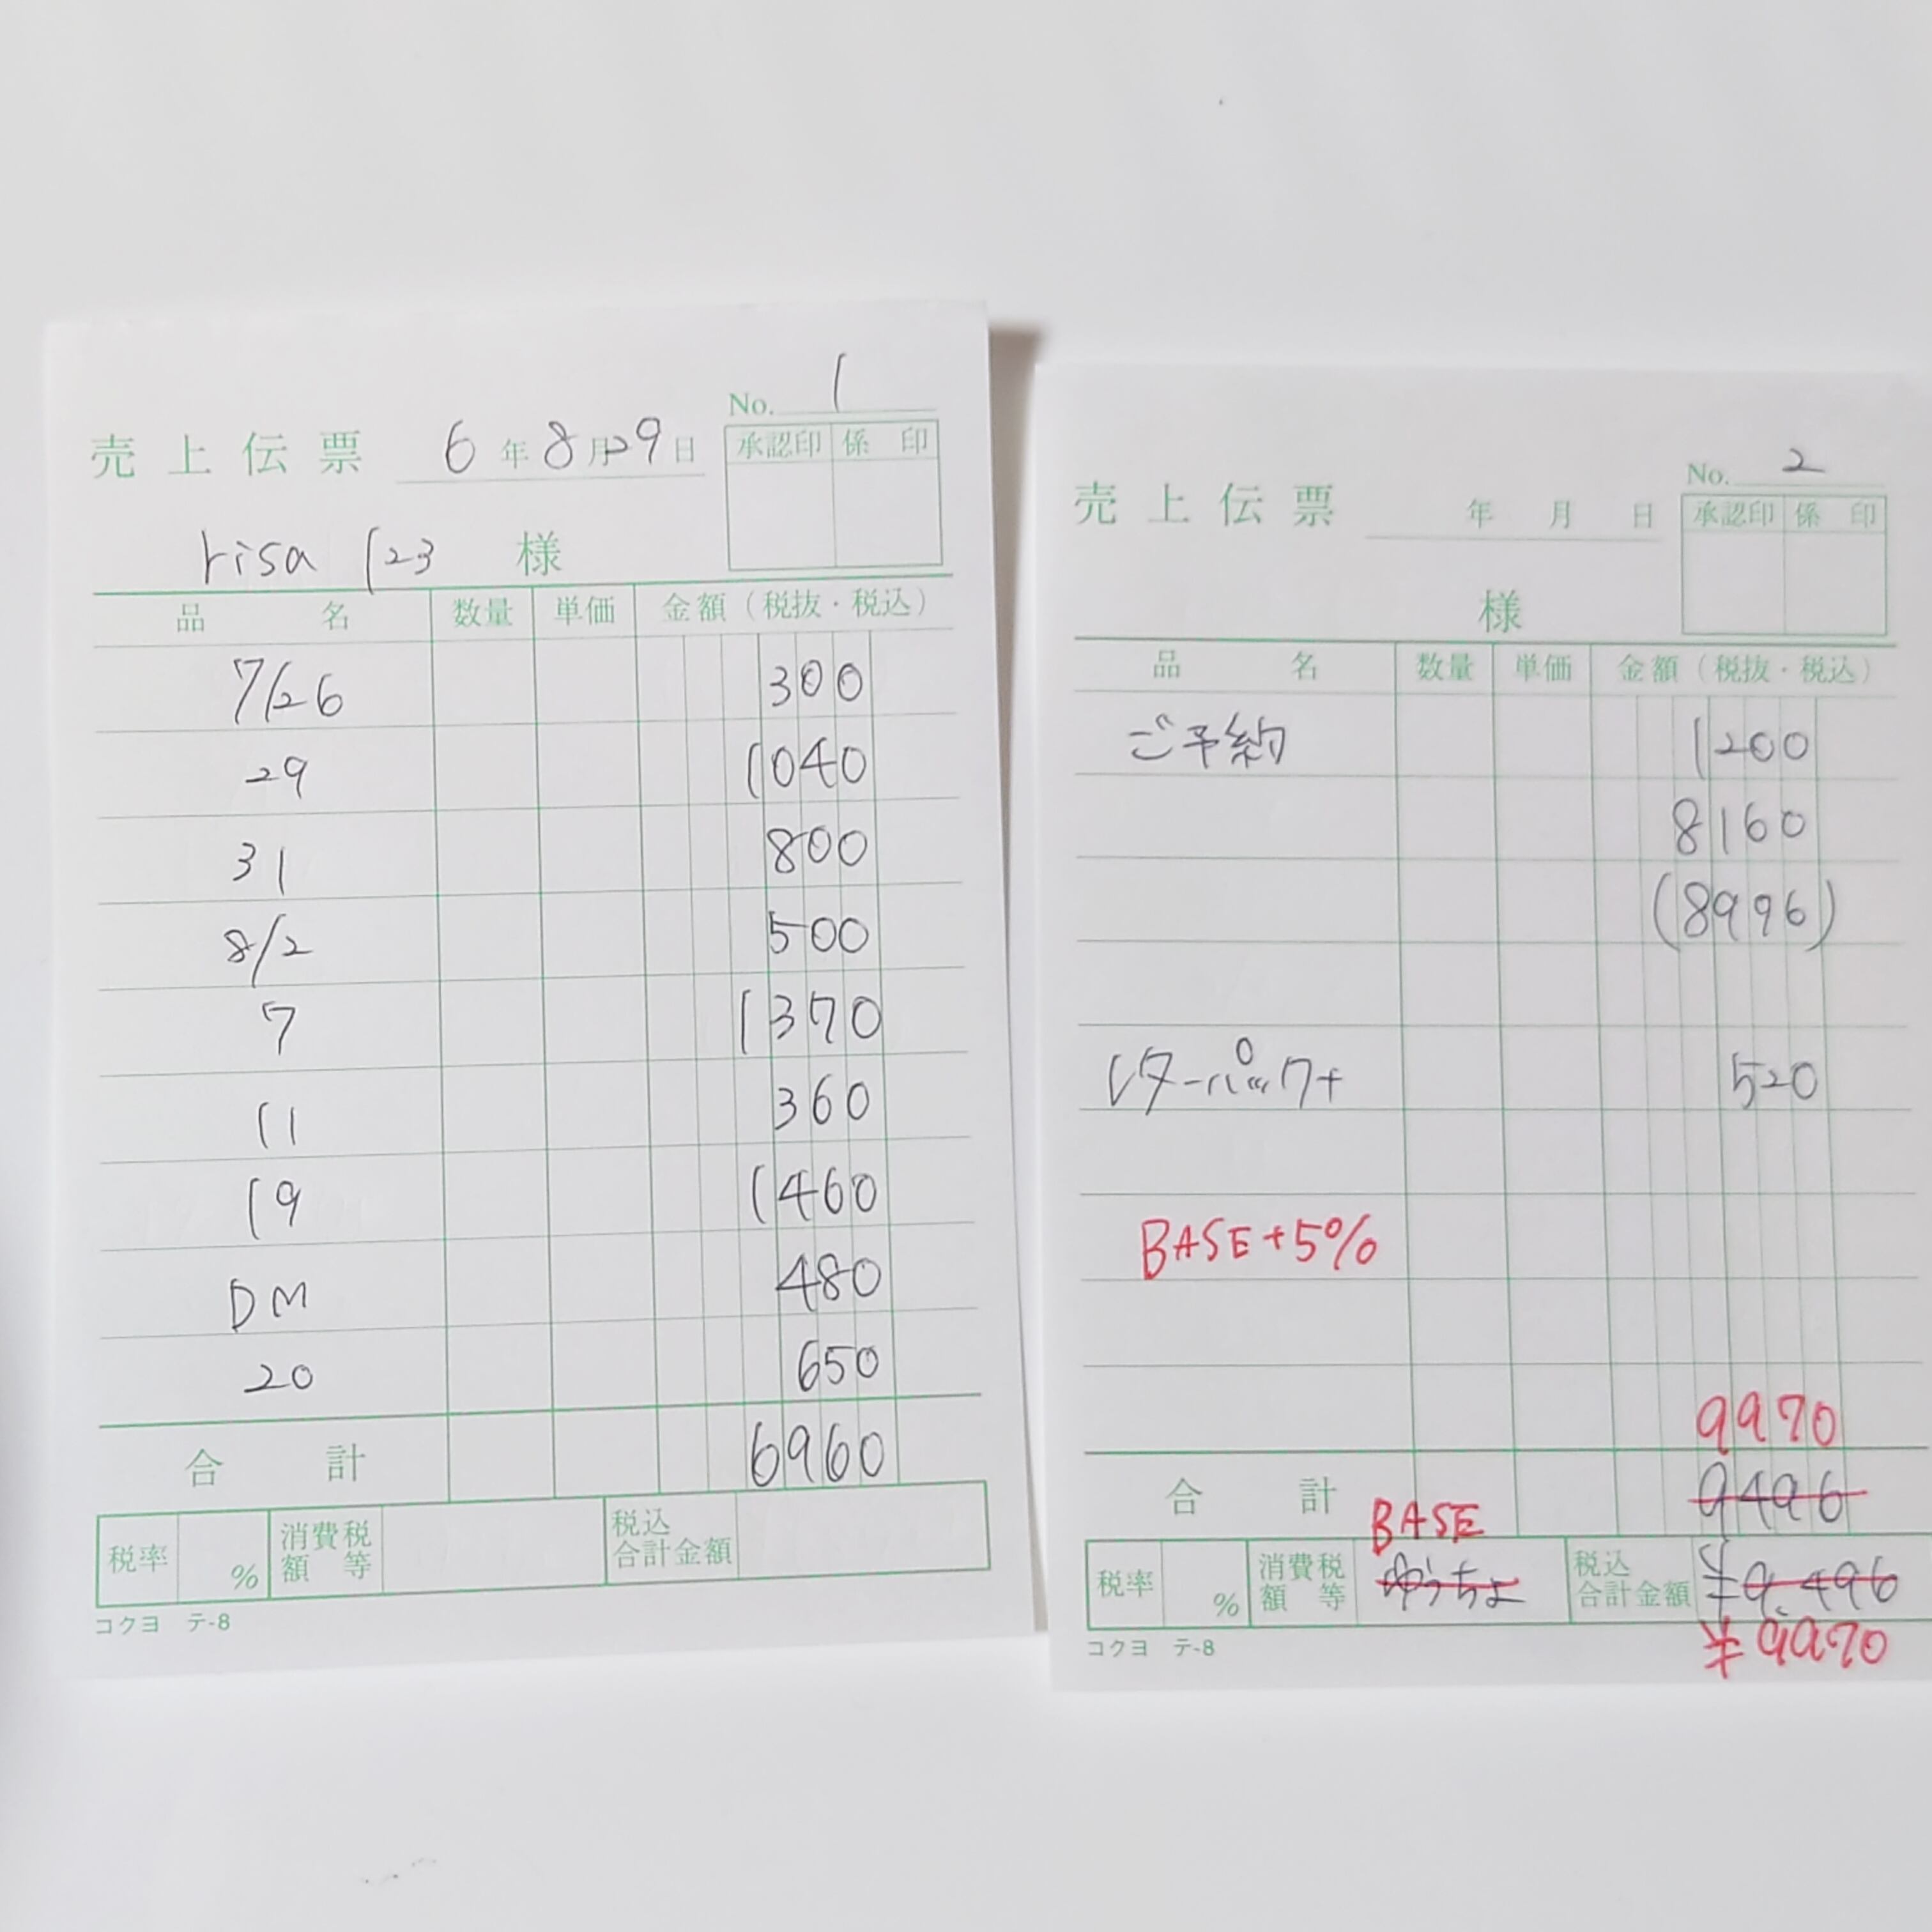 No. 1
売上伝票 6年8月29日
承認印 係印
risa 123 様
品名 数量 単価 金額（税抜・税込）
7/26 300
29 1040
31 800
8/2 500
7 1370
11 360
19 1460
DM 480
20 650
合計 6960
税率 % 消費税額等 税込合計金額
コクヨ テ-8
No. 2
売上伝票 年 月 日
承認印 係印
様
品名 数量 単価 金額（税抜・税込）
ご予約 1200
8160
(8996)
レターパック+ 520
BASE+5%
9970
合計 9496
BASE
税率 % 消費税額等 ゆうちょ 税込合計金額 ¥9,496
コクヨ テ-8
¥9970